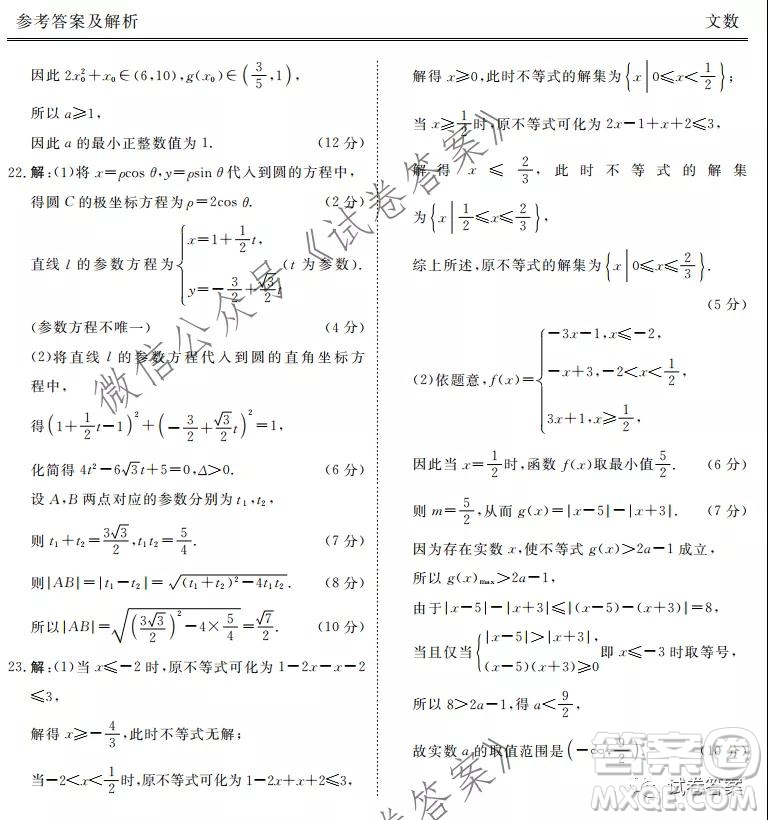 参考答案及解析
文数
因此 2x₀²+x₀∈(6,10),g(x₀)∈(3/5,1),
所以 a≥1,
因此 a 的最小正整数值为 1. (12 分)
22.解:(1)将 x=ρcos θ,y=ρsin θ代入到圆的方程中,
得圆 C 的极坐标方程为 ρ=2cos θ. (2 分)
直线 l 的参数方程为{x=1+1/2 t, y=-3/2+√3/2 t (t 为参数).
(参数方程不唯一) (4 分)
(2)将直线 l 的参数方程代入到圆的直角坐标方
程中,
得(1+1/2 t-1)²+(-3/2+√3/2 t)²=1,
化简得 4t²-6√3t+5=0,Δ>0. (6 分)
设 A,B 两点对应的参数分别为 t₁,t₂,
则 t₁+t₂=3√3/2,t₁t₂=5/4. (7 分)
则|AB|=|t₁-t₂|=√((t₁+t₂)²-4t₁t₂). (8 分)
所以|AB|=√((3√3/2)²-4×5/4)=√7/2. (10 分)
23.解:(1)当 x≤-2 时,原不等式可化为 1-2x-x-2
≤3,
解得 x≥-4/3,此时不等式无解;
当-2<x<1/2时,原不等式可化为 1-2x+x+2≤3,
解得 x≥0,此时不等式的解集为{x|0≤x<1/2};
当 x≥1/2时,原不等式可化为 2x-1+x+2≤3,
解得 x≤2/3,此时不等式的解集
为{x|1/2≤x≤2/3},
综上所述,原不等式的解集为{x|0≤x≤2/3}.
(5 分)
(2)依题意,f(x)={-3x-1,x≤-2, -x+3,-2<x<1/2, 3x+1,x≥1/2,
因此当 x=1/2时,函数 f(x)取最小值5/2. (6 分)
则 m=5/2,从而 g(x)=|x-5|-|x+3|. (7 分)
因为存在实数 x,使不等式 g(x)>2a-1 成立,
所以 g(x)max>2a-1.
由于|x-5|-|x+3|≤|(x-5)-(x+3)|=8,
当且仅当{|x-5|>|x+3| (x-5)(x+3)≥0 即 x≤-3 时取等号,
所以 8>2a-1,得 a<9/2,
故实数 a 的取值范围是(-∞,9/2). (10 分)
微信公众号《试卷答案》
试卷答案
答案圈
MXQE.COM